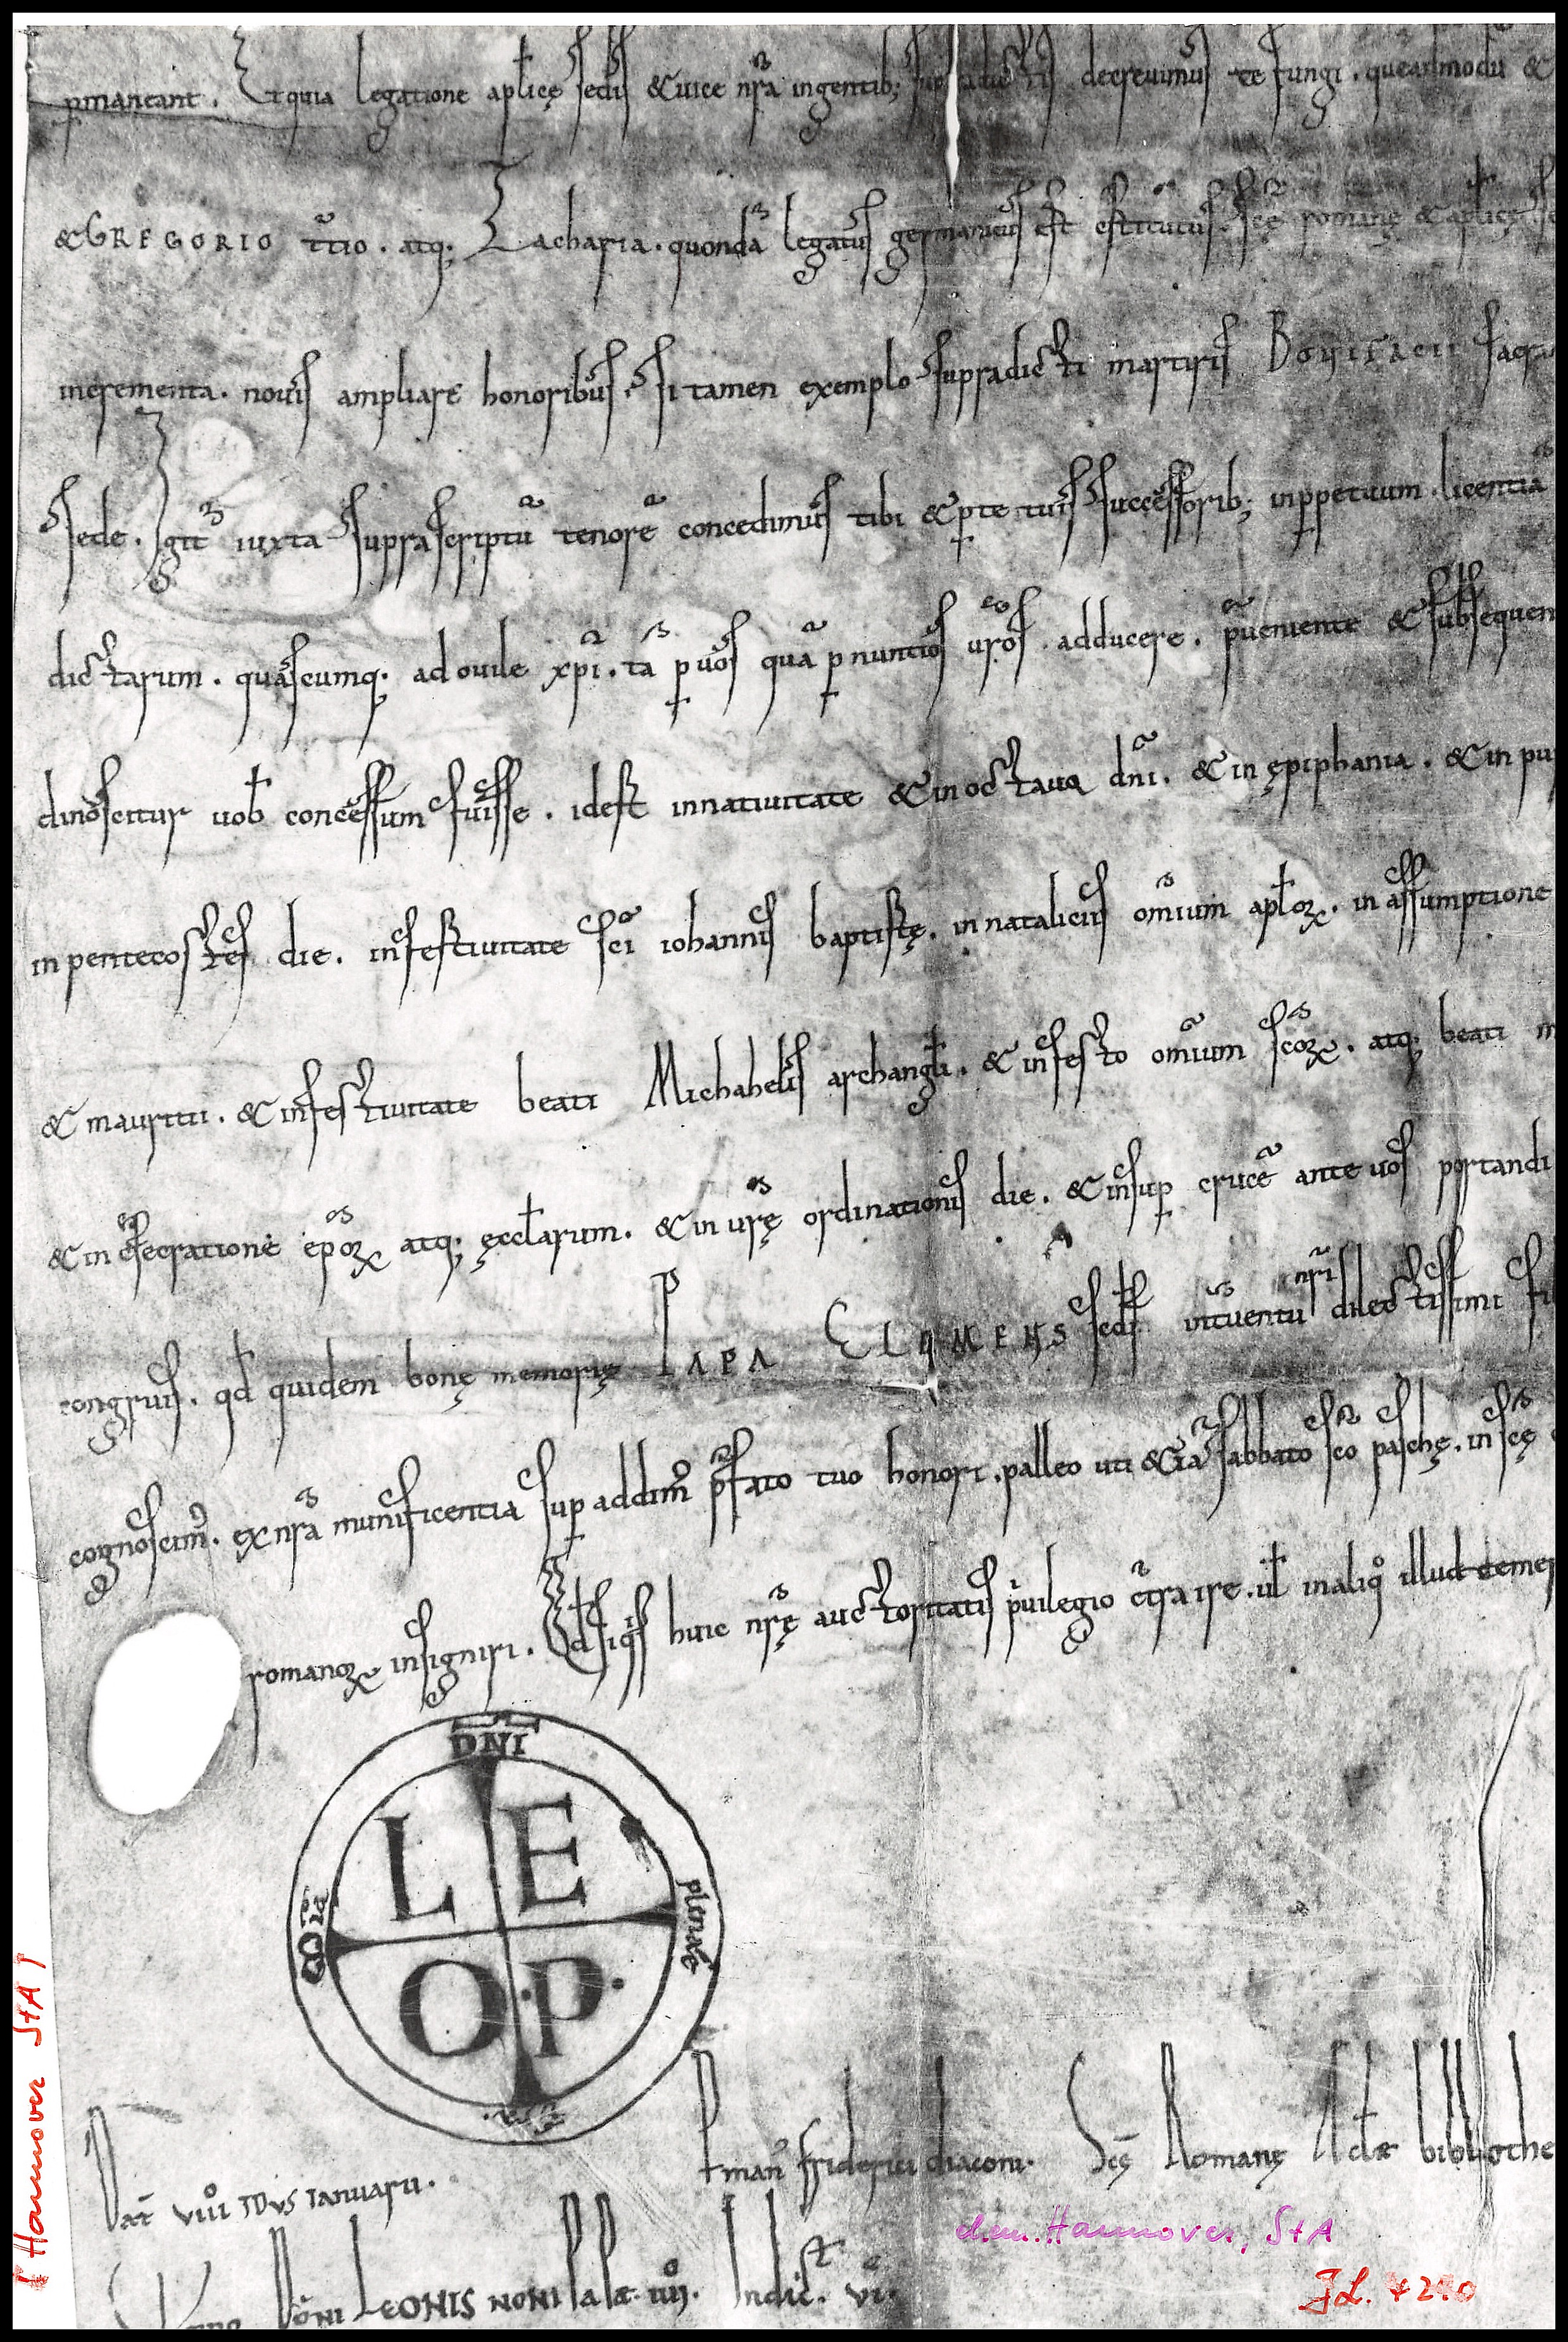 pmaneant. Et quia legatione aplicę sedis & uice nr̄a in gentib; decreuimus te fungi. queadmodū &
& GREGORIO t̄tio. atq; Zacharia. quondā legatus germanicus ēst cstitutus. scę romanę & aplicę
incrementa. nouis ampliare honoribus. si tamen exemplo supradicti martiris BONIFACII
sede. Igit̄ iuxta suprascriptū tenorē concedimus tibi & p te tuis successorib; in ppetuum. licentiā
dictarum. quascumq; ad ouile xp̄i. tā p uos quā p nuntios ur̄os. adducere. p̄ueniente & subsequen
dinoscitur uob concessum fuisse. idest in natiuitate & in octaua dn̄i. & in ępiphania. & in pu
in pentecostes die. in festiuitate sc̄i iohannis baptistę. in nataliciis om̄ium aplōꝝ. in assumptione
& mauritii. & in festiuitate beati Michahelis archangli. & in festo om̄ium sc̄oꝝ. atq; beati m
& in csecrationē ep̄oꝝ atq; ęccłarum. & in ur̄ę ordinationis die. & insup crucē ante uos portandi
congruis. qd quidem bonę memorię PAPA CLEMENS scds intuentu nr̄i dilectissimi fi
cognoscim᾽. ex nr̄a munificentia supaddim᾽ p̄fato tuo honori. palleo uti & iā sabbato sc̄o paschę. in scę
romanoꝝ insigniri. Qd siqis huic nr̄ę auctoritatis p̄uilegio c̄tra ire. ul in aliqo illud temer
DNI
LE
O.P.
plena ē
Dat̄ VIII IDVS Ianuarii.
p̄ man᾽ friderici diaconi. Scę Romanę bibliothe
Anno Dōni LEONIS NONI PaPae. IIII. Indic̄. VI.
d.eu. Hannover, StA
JL. 4290
[Hannover StA]